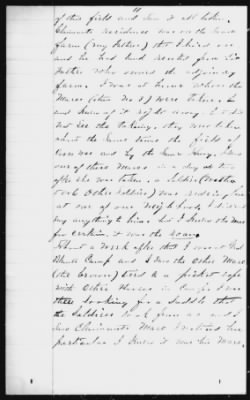 11
of this field and saw it all taken.
Claimants residence was on the home
farm (my Father) that I lived on
and he had land rented from his
Father who owned the adjoining
farm. I was at home when the
Mares (item No 1) were taken. So
was of it right away. I did
not see the taking. they were taken
about the same time the field of
Corn was and by the same Army. I saw
one of these Mares in a day or two
after she was taken. a soldier
took Other Soldiers) was riding her
at one of our Neighbors. I didn't
say anything to him. but I knew the Mare
for certain. it was the roan.
About a week after that I went to
Camp and I saw the other Mare
(the brown) tied to a picket rope
with Other Horses in Camp. I was
there looking for a Saddle that
the Soldiers took from us and I
saw Claimants Mare I noticed her
particular I knew it was his Mare.